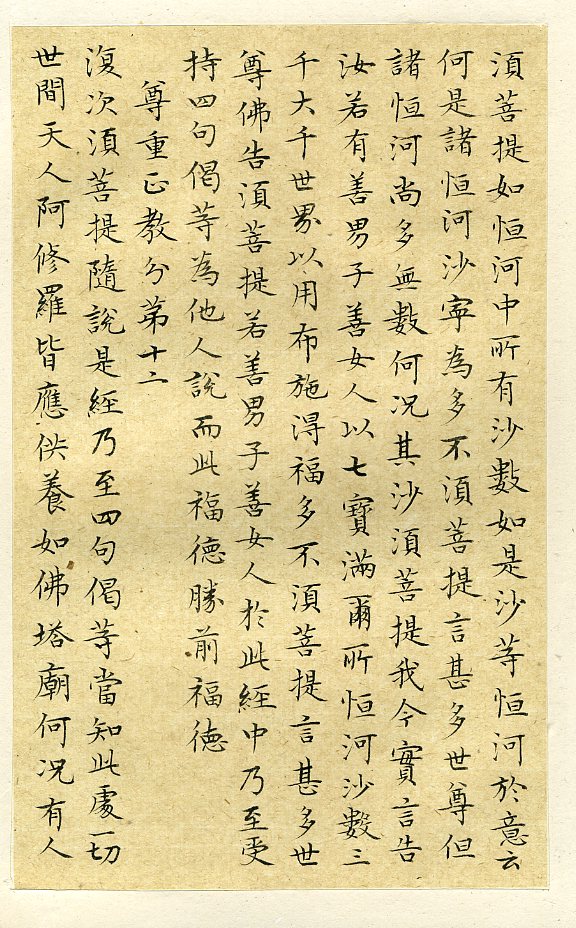 須菩提如恒河中所有沙數如是沙等恒河於意云
何是諸恒河沙寧為多不須菩提言甚多世尊但
諸恒河尚多無數何况其沙須菩提我今實言告
汝若有善男子善女人以七寶滿爾所恒河沙數三
千大千世界以用布施得福多不須菩提言甚多世
尊佛告須菩提若善男子善女人於此經中乃至受
持四句偈等為他人說而此福德勝前福德
尊重正教分第十二
復次須菩提隨說是經乃至四句偈等當知此處一切
世間天人阿修羅皆應供養如佛塔廟何况有人